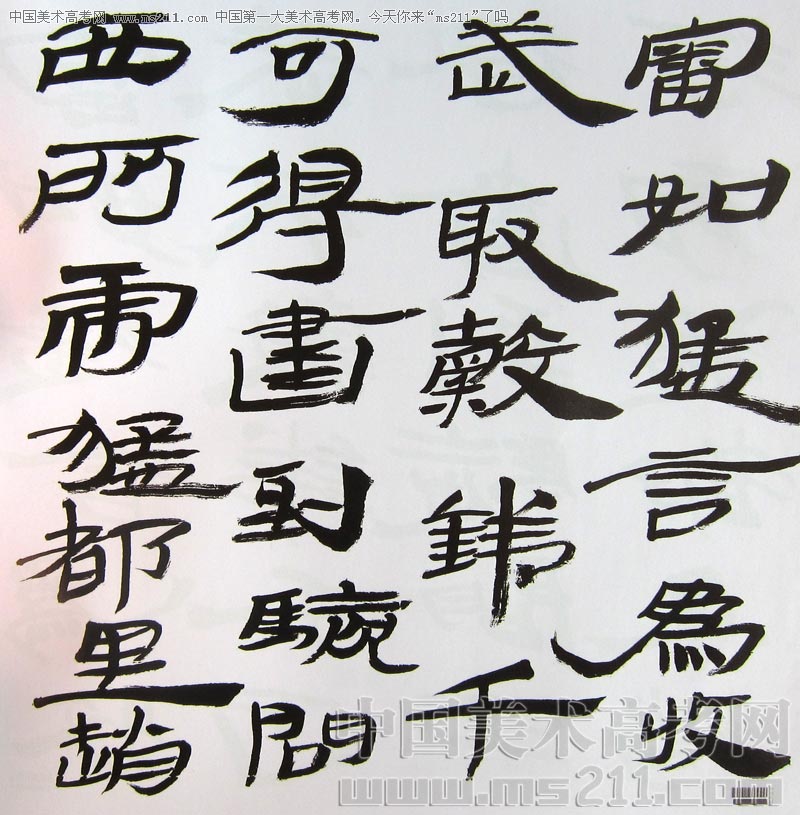 中国美术高考网 www.ms211.com 中国第一大美术高考网。今天你来“ms211”了吗
審如猛言為收
武取穀千
可得書到驗問
西所猛都里趙
中国美术高考网
www.ms211.com